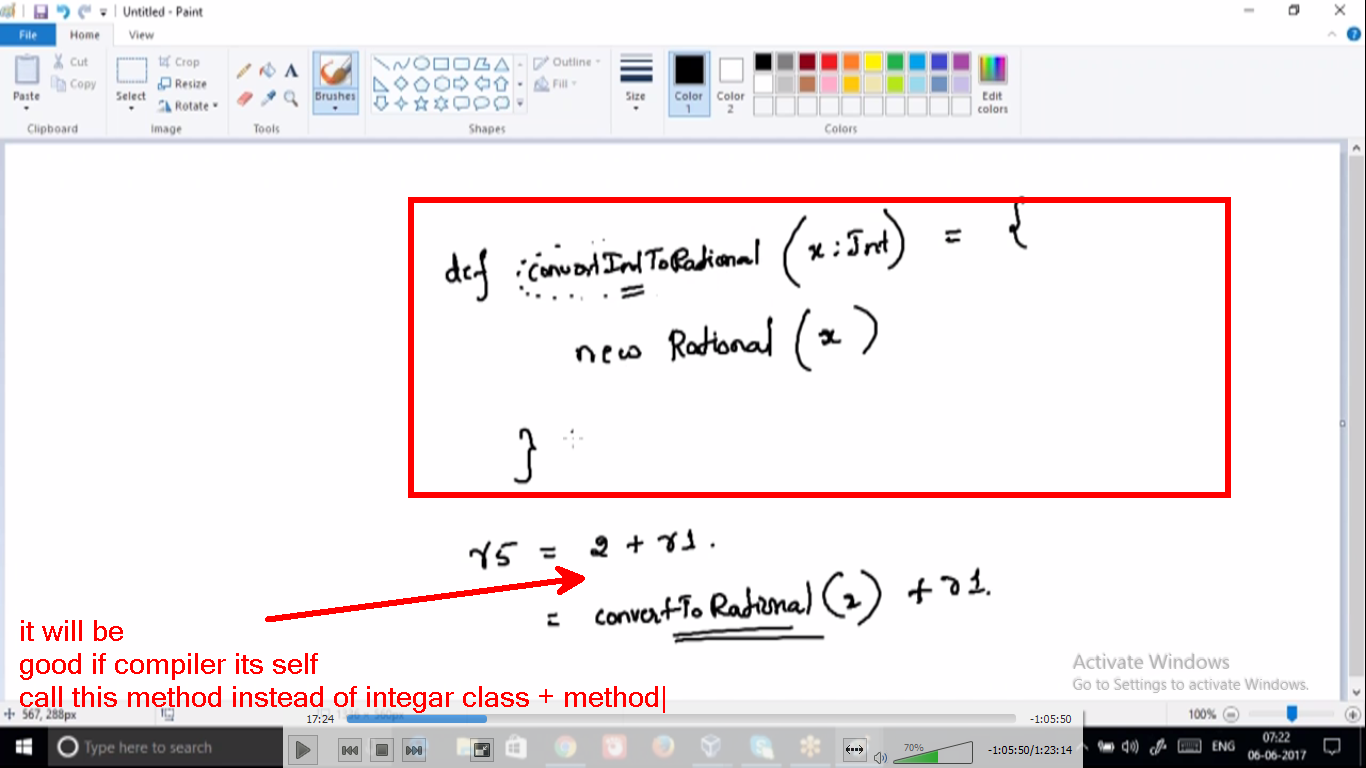 Untitled - Paint
File Home View
Cut
Copy
Paste
Clipboard
Crop
Resize
Rotate
Select
Image
Tools
Brushes
Outline
Fill
Shapes
Size
Color 1
Color 2
Edit colors
Colors
def convertIntToRational (x : Int) = {
new Rational (x)
}
r5 = 2 + r1 .
= convertToRational (2) + r1.
it will be
good if compiler its self
call this method instead of integar class + method
Activate Windows
Go to Settings to activate Windows.
567, 288px
100%
17:24 -1:05:50
Type here to search
70%
-1:05:50/1:23:14
ENG
07:22
06-06-2017